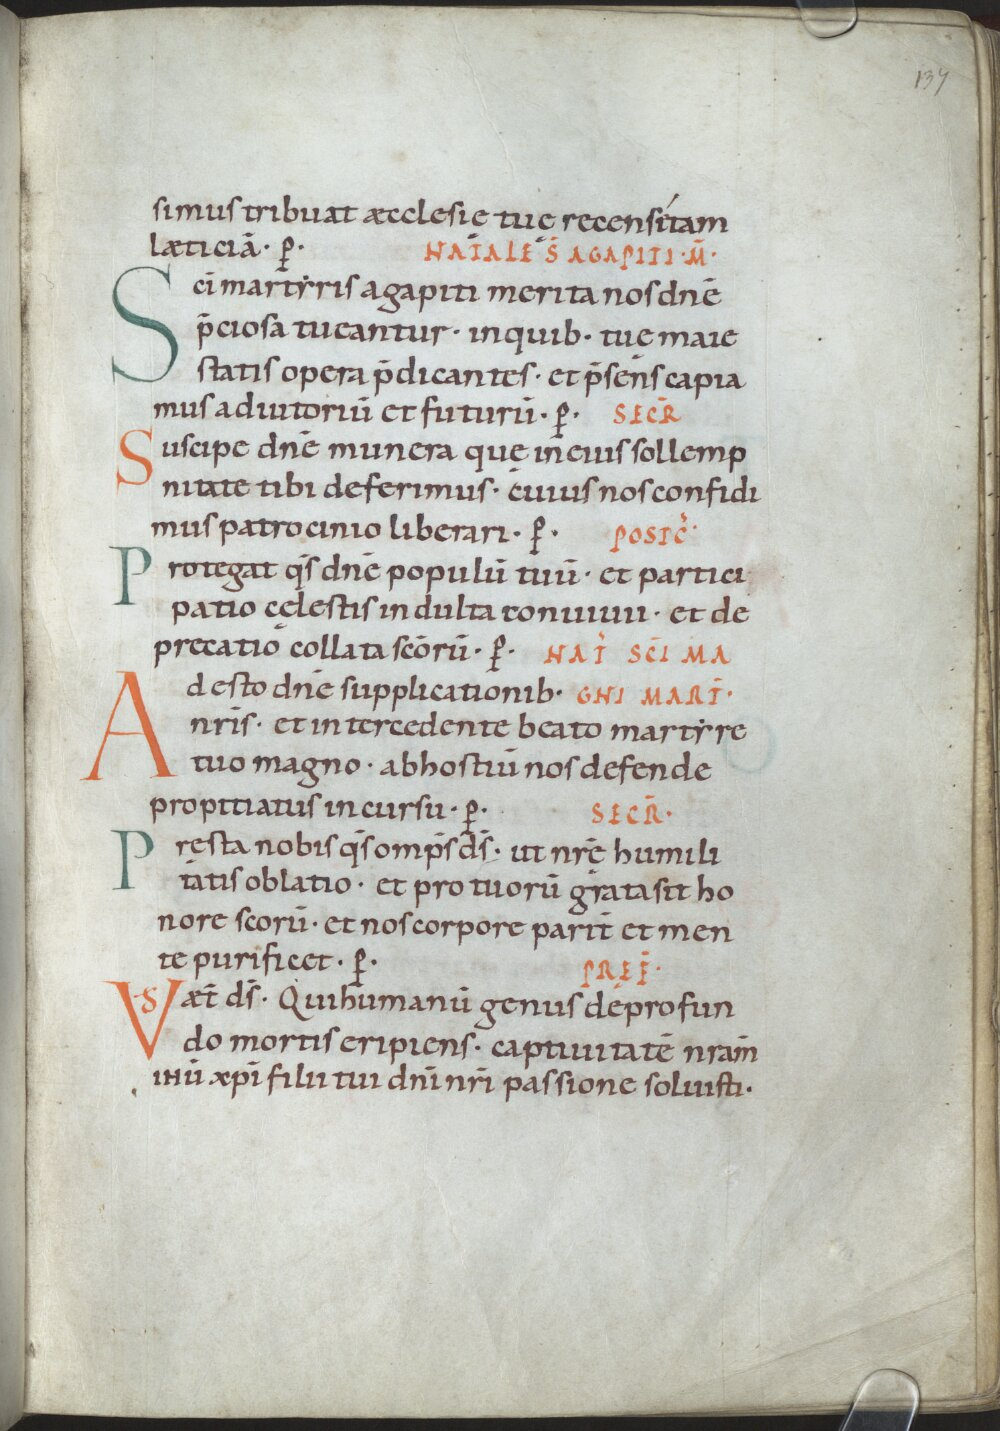 137
simus tribuat æcclesie tuę recensitam
læticiā· ꝑ· NAT̄ALE S̄ AGAPITI·M̄·
Sc̄i martẏris agapiti merita nos dn̄e
p̄ciosa tueantur· in quib· tuę maie
statis opera p̄dicantes· et p̄sens̄ capia
mus adiutoriū et futurū· ꝑ· SECR̄
Suscipe dn̄e munera quę in eius sollemp
nitate tibi deferimus· cuius nos confidi
mus patrocinio liberari· ꝑ· POSTC̄·
Protegat q̄s dn̄e populū tuū· et partici
patio cęlestis indulta conuiuii· et de
precatio collata sc̄orū· ꝑ· NAT̄ SC̄I MA
Adesto dn̄e supplicationib· GNI MART̄·
nr̄is· et intercedente beato martẏre
tuo magno· ab hostiū nos defende
propitiatus incursu· ꝑ· SECR̄·
Presta nobis q̄s omp̄s d̄s· ut nr̄ę humili
tatis oblatio· et pro tuorū grata sit ho
nore scorū· et nos corpore parit̄ et men
te purificet· ꝑ· PREF̄·
VS æt̄ d̄s· Qui humanū genus de profun
do mortis eripiens· captiuitatē nram̄
ihū xp̄i filii tui dn̄i nr̄i passione soluisti·